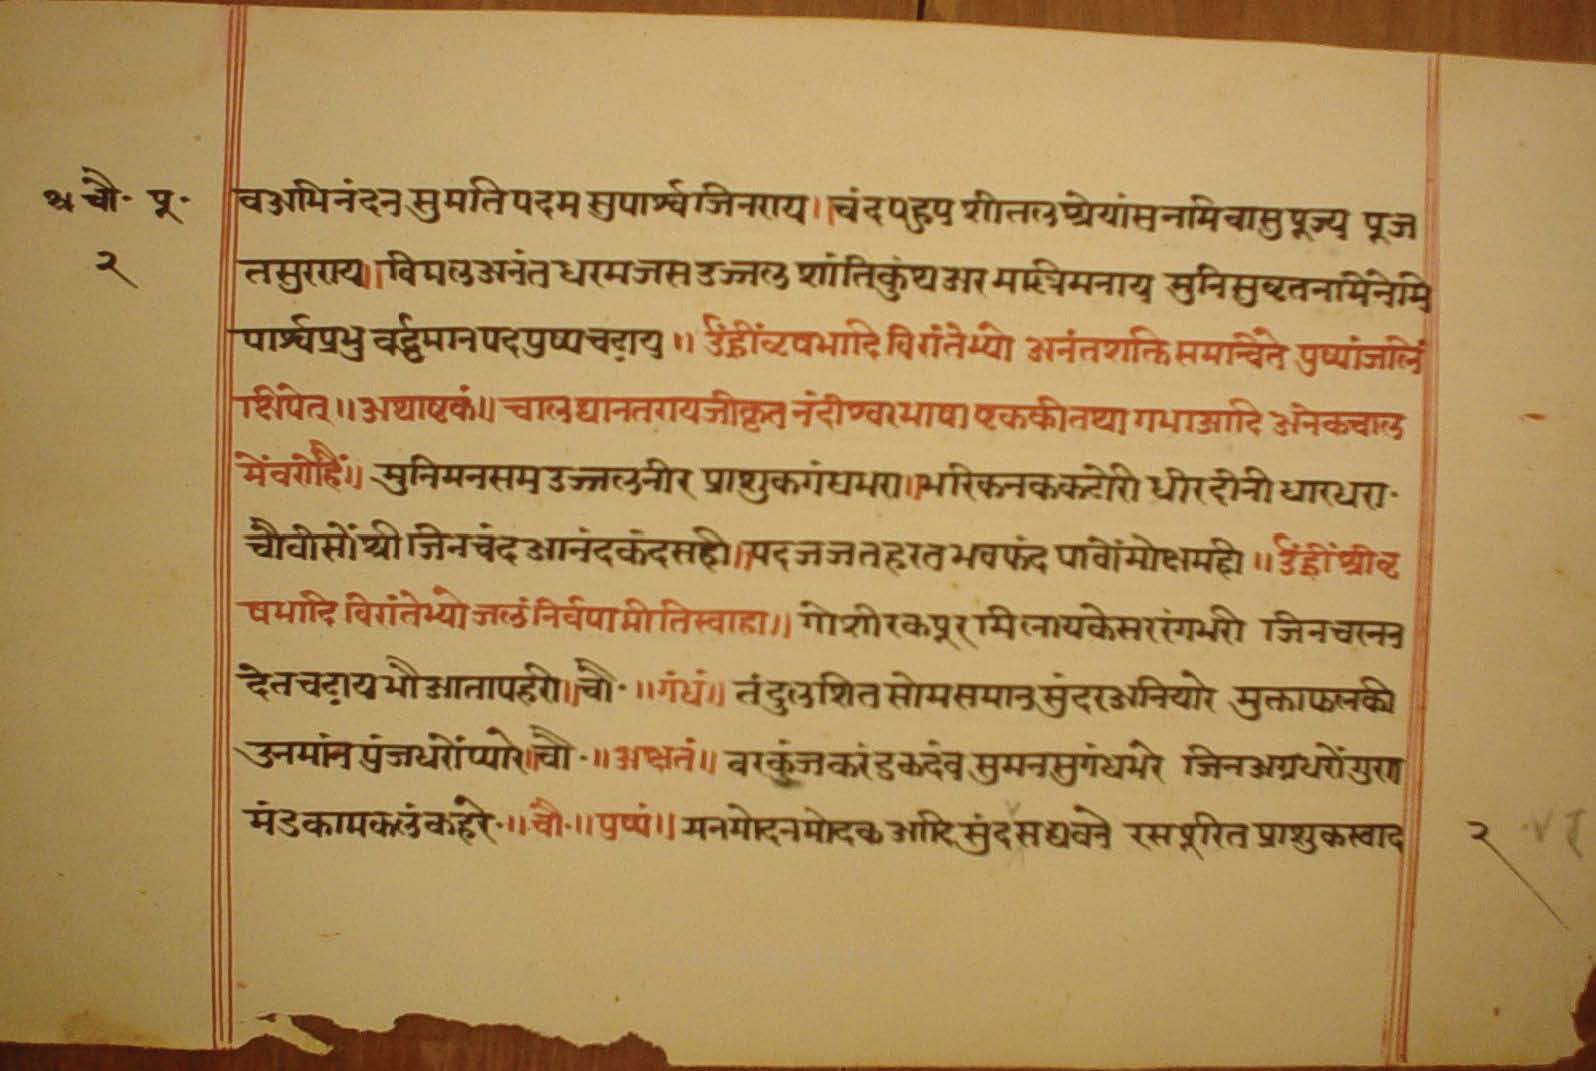 चौ॰ पू॰
२
वअभिनंदनसुमतिपदमसुपार्श्वजिनराय॥चंदपहुपशीतलश्रेयांसनमिवासुपूज्य पूज
तसुरराय॥विमलअनंतधरमजसउज्जलशांतिकुंथअरमल्लिमनाय मुनिसुव्रतनमिनेमि
पार्श्वप्रभुवर्द्धमानपदपुष्पचढ़ाय॥ॐह्रींवृषभादिविरांतेभ्यो अनंतशक्तिसमान्विते पुष्पांजलिं
क्षिपेत्॥अथाष्टकं॥चालद्यानतरायजीकृतनंदीश्वरभाषाष्टककीतथागर्भाआदि अनेकचाल
मेंवरोहैं॥मुनिमनसमउज्जलनीर प्राशुकगंधभरा॥भरिकनककटोरी धीरदीनी धारधरा॰
चौवीसोंश्रीजिनचंदआनंदकंदसही॥पदजजतहरतभवफंद पावोंमोक्षमही॥ॐह्रींश्रीवृ
षभादिविरांतेभ्योजलंनिर्वपामीतिस्वाहा॥गोशीरकपूरमिलायकेसररंगभरी जिनचरनन
देतचढ़ायभौआतापहरी॥चौ॰॥गंधं॥तंदुलशितसोमसमानसुंदरअनियारे मुक्ताफलकी
उनमांनपुंजधरोंप्यारे॥चौ॰॥अक्षतं॥वरकुंजकरंडकदंवसुमनसुगंधभरे जिनअग्रधरोंगुण
मंडकामकलंकहरे॰॥चौ॰॥पुष्पं॥मनमोदनमोदकआदिसुंदसद्यवने रसपूरितप्राशुकस्वाद
२